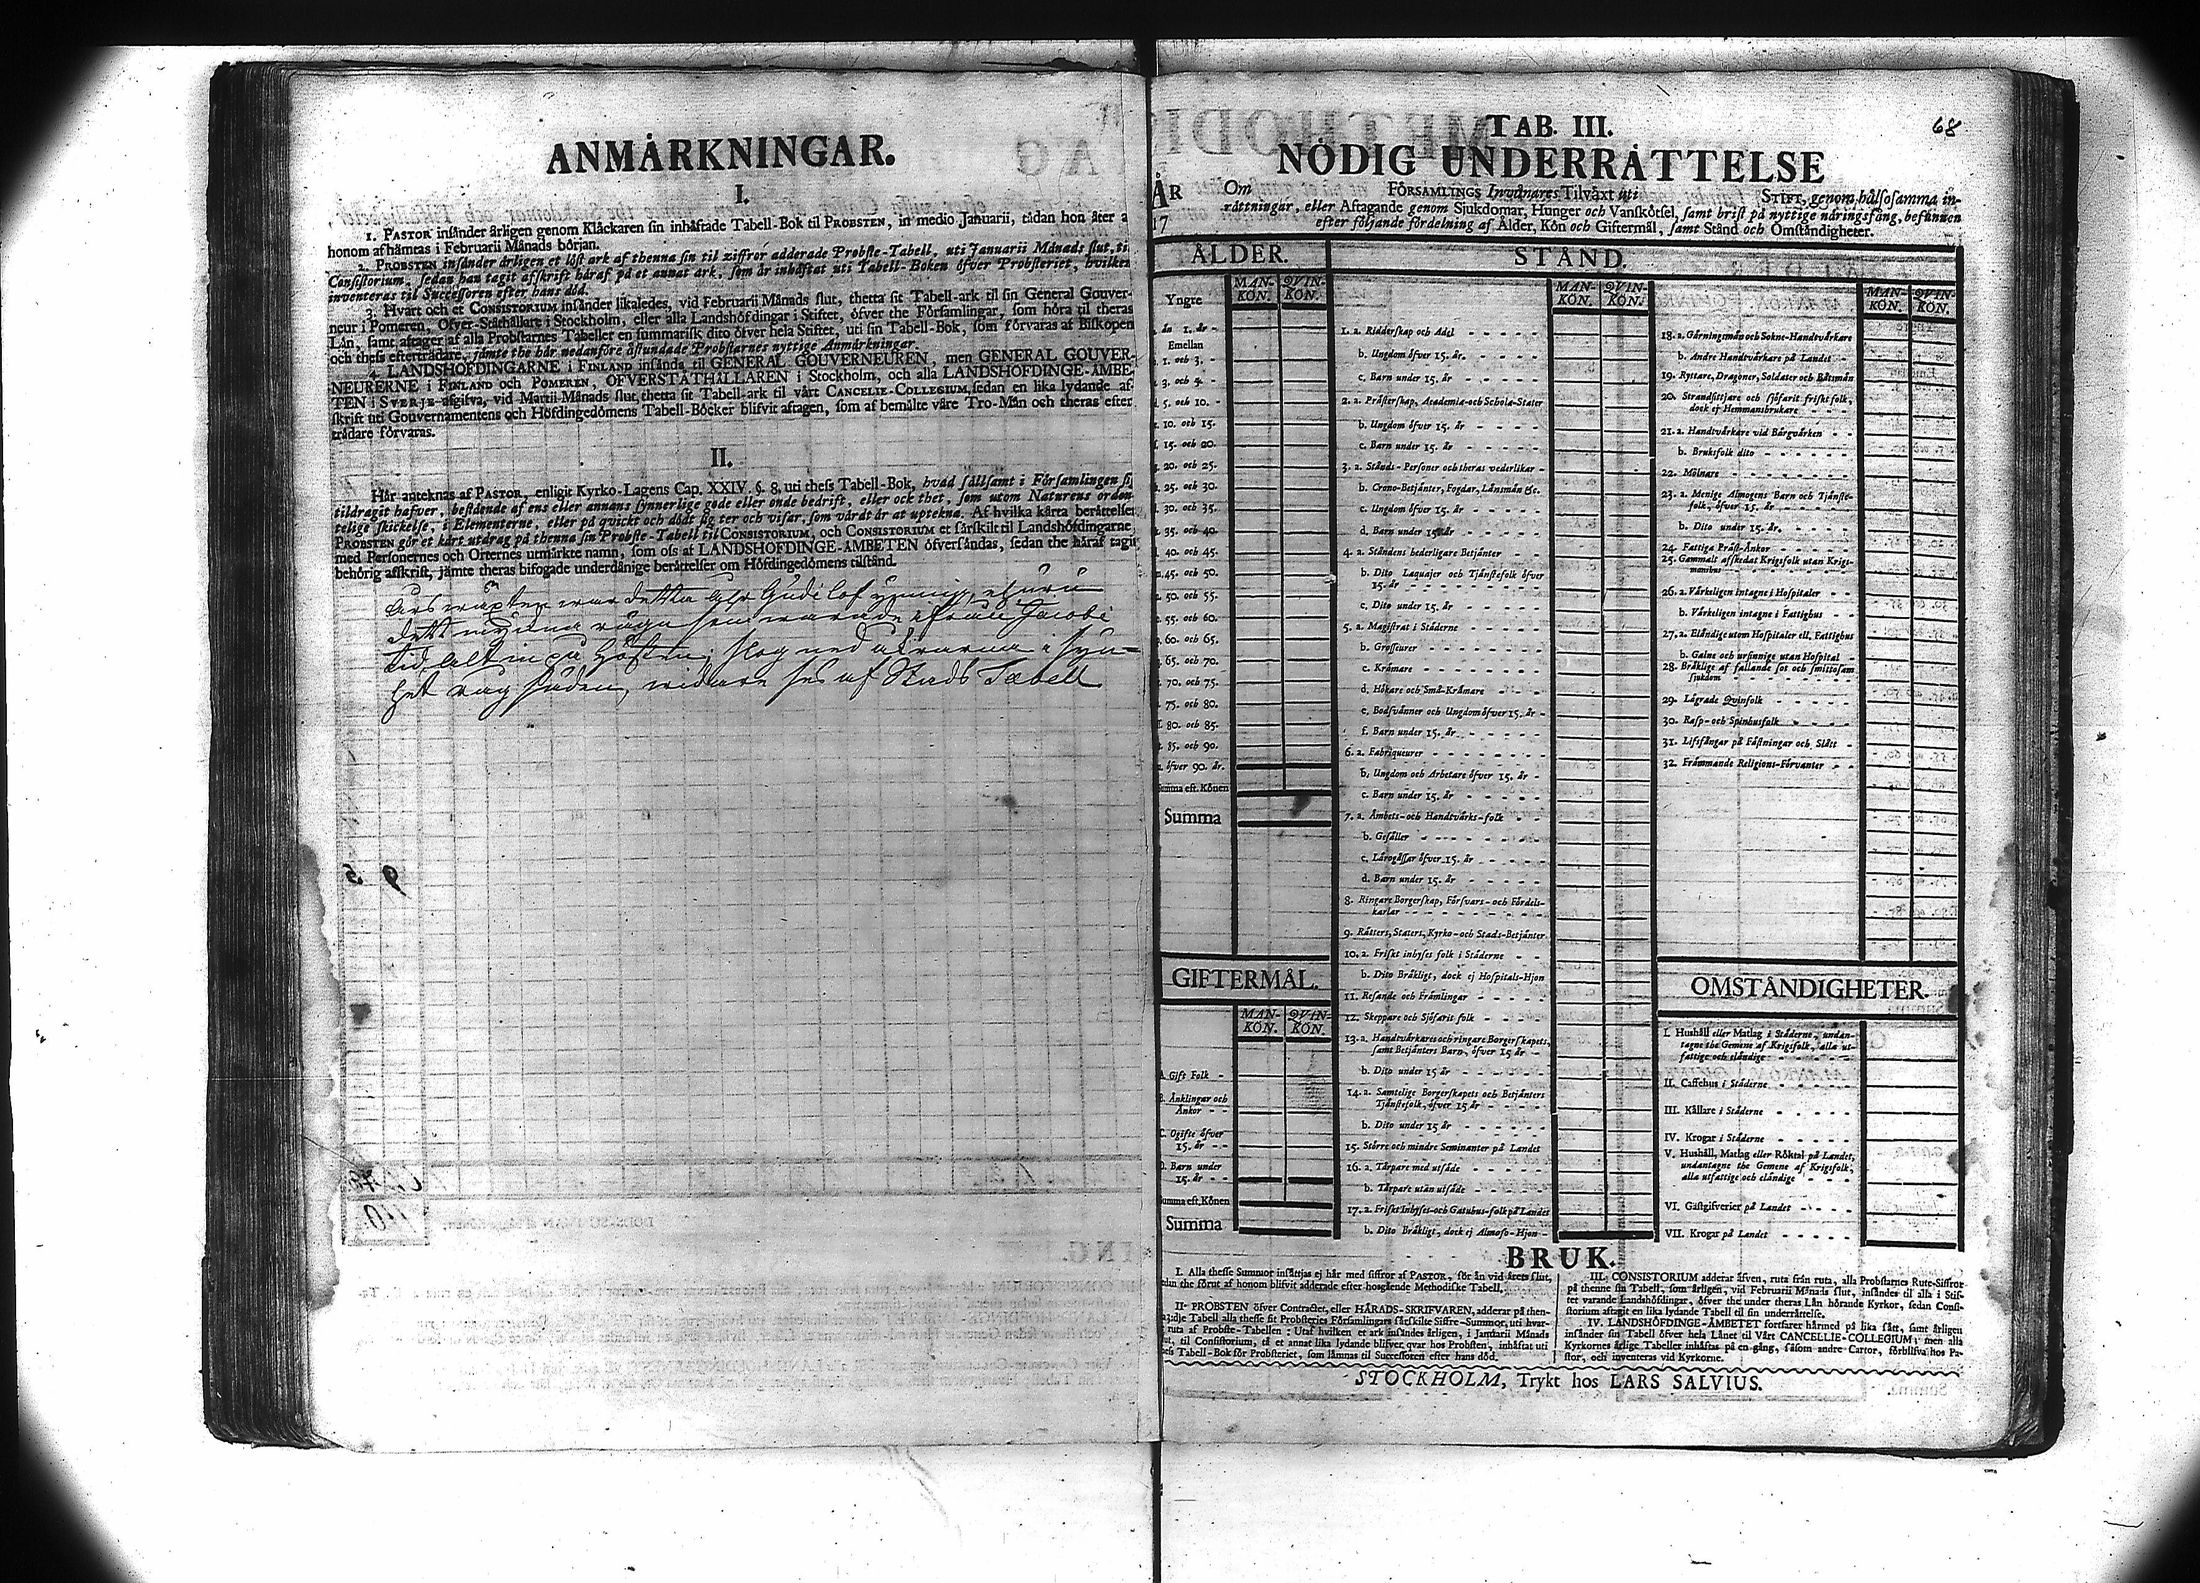 ANMÅRKNINGAR.
I.
1. PASTOR insånder årligen genom Klåckaren sin inhåftade Tabell-Bok til PROBSTEN, in medio Januarii, tådan hon åter a
honom afhåmtas i Februarii Månads början.
2. PROBSTEN insånder årligen et löst ark af thenna sin til ziffror adderade Probste-Tabell, uti Januarii Månads slut, ti
Consistorium, sedan han tagit afskrift håraf på et annat ark, som år inhåftat uti Tabell-Boken öfver Probsteriet, hvilken
inventeras til Successoren efter hans död.
3. Hvart och et CONSISTORIUM insånder likaledes, vid Februarii Månads slut, thetta sit Tabell-ark til sin General Gouver-
neur i Pomeren, Öfver-Ståthållare i Stockholm, eller alla Landshöfdingar i Stiftet, öfver the Församlingar, som höra til theras
Lån, samt aftager af alla Probstarnes Tabeller en summarisk dito öfver hela Stiftet, uti sin Tabell-Bok, som förvaras af Biskopen
och thess eftertrådare, jämte the hår nedanföre åstundade Probstarnes nyttige Anmårkningar.
4. LANDSHÖFDINGARNE i FINLAND insånda til GENERAL GOUVERNEUREN, men GENERAL GOUVER-
NEURERNE i FINLAND och POMEREN, ÖFVERSTÅTHÅLLAREN i Stockholm, och alla LANDSHÖFDINGE-ÅMBE-
TEN i SVERJE afgifva, vid Martii Månads slut, thetta sit Tabell-ark til vårt CANCELIE-COLLEGIUM, sedan en lika lydande af-
skrift uti Gouvernamentens och Höfdingedömens Tabell-Böcker blifvit aftagen, som af bemålte våre Tro-Mån och theras efter
trådare förvaras.
II.
Hår anteknas af PASTOR, enligit Kyrko-Lagens Cap. XXIV. §. 8. uti thess Tabell-Bok, hvad sållsamt i Församlingen sig
tildragit hafver, bestående af ens eller annans synnerlige gode eller onde bedrift, eller ock thet, som utom Naturens orden-
telige skickelse, i Elementerne, eller på qvickt och dödt sig ter och visar, som vårdt år at uptekna. Af hvilka kårta beråttelser
PROBSTEN gör et kårt utdrag på thenna sin Probste-Tabell til CONSISTORIUM, och CONSISTORIUM et sårskilt til Landshöfdingarne
med Personernes och Orternes utmårkte namn, som oss af LANDSHÖFDINGE-ÅMBETEN öfversåndas, sedan the håraf tagit
behörig afskrift, jämte theras bifogade underdånige beråttelser om Höfdingedömens tilstånd.
Årswäxten war detta åhr Gudi lof ymnig, ehuru
det myckna rägn som warade ifrån Jacobi
tid alt in på Hösten, slog ned åkrarna i
het rug säden, widare ses af Stads Tabell
68
TAB. III.
NÖDIG UNDERRÅTTELSE
ÅR 17
Om FÖRSAMLINGS Inwånares Tilvåxt uti STIFT, genom hålsosamma in-
råttningar, eller Aftagande genom Sjukdomar, Hunger och Vanskötsel, samt brist på nyttige nåringsfång, befunnen
efter följande fördelning af Ålder, Kön och Giftermål, samt Stånd och Omståndigheter.
ÅLDER.
MAN-KÖN. QVIN-KÖN.
Yngre
ån 1. år
Emellan
1. och 3.
3. och 5.
5. och 10.
10. och 15.
15. och 20.
20. och 25.
25. och 30.
30. och 35.
35. och 40.
40. och 45.
45. och 50.
50. och 55.
55. och 60.
60. och 65.
65. och 70.
70. och 75.
75. och 80.
80. och 85.
85. och 90.
öfver 90. år.
Summa eft. Könen
Summa
GIFTERMÅL.
MAN-KÖN. QVIN-KÖN.
A. Gift Folk
B. Ånklingar och
Ånkor
C. Ogifte öfver
15. år
D. Barn under
15. år
Summa eft. Könen
Summa
STÅND.
MAN-KÖN. QVIN-KÖN.
1. a. Ridderskap och Adel
b. Ungdom öfver 15. år.
c. Barn under 15. år
2. a. Pråsterskap, Academia- och Schola-Stater
b. Ungdom öfver 15. år
c. Barn under 15. år
3. a. Stånds-Personer och theras vederlikar
b. Crono-Betjånter, Fogdar, Lånsmån &c.
c. Ungdom öfver 15. år
d. Barn under 15. år
4. a. Ståndens hederligare Betjånter
b. Dito Laquajer och Tjånstefolk öfver
15. år
c. Dito under 15. år
5. a. Magistrat i Ståderne
b. Grosseurer
c. Kråmare
d. Hökare och Små-Kråmare
e. Bodsvånner och Ungdom öfver 15. år
f. Barn under 15. år
6. a. Fabriqueurer
b. Ungdom och Arbetare öfver 15. år
c. Barn under 15. år
7. a. Åmbets- och Handtvårks-folk
b. Gesåller
c. Lårogåssar öfver 15. år
d. Barn under 15. år
8. Ringare Borgerskap, Försvars- och Fördels-
karlar
9. Råtters, Staters, Kyrko- och Stads-Betjånter
10. a. Friskt inhyses folk i Ståderne
b. Dito Bråkligt, dock ej Hospitals-Hjon
11. Resande och Fråmlingar
12. Skeppare och Sjöfarit folk
13. a. Handtvårkares och ringare Borgerskapets,
samt Betjånters Barn, öfver 15 år
b. Dito under 15 år
14. a. Samtelige Borgerskapets och Betjånters
Tjånstefolk, öfver 15 år
b. Dito under 15 år
15. Större och mindre Seminanter på Landet
16. a. Tårpare med utsåde
b. Tårpare utan utsåde
17. a. Friskt Inhyses- och Gatuhus-folk på Landet
b. Dito Bråkligt, dock ej Almoso-Hjon
MAN-KÖN. QVIN-KÖN.
18. a. Gårningsmån och Sokne-Handtvårkare
b. Andre Handtvårkare på Landet
19. Ryttare, Dragoner, Soldater och Båtsmån
20. Strandsittjare och sjöfarit friskt folk,
dock ej Hemmansbrukare
21. a. Handtvårkare vid Bårgvårken
b. Bruksfolk dito
22. Mölnare
23. a. Menige Almogens Barn och Tjånste-
folk, öfver 15. år
b. Dito under 15. år.
24. Fattiga Pråst-Ånkor
25. Gammalt afskedat Krigsfolk utan Krigs-
manshus
26. a. Vårkeligen intagne i Hospitaler
b. Vårkeligen intagne i Fattighus
27. a. Elåndige utom Hospitaler ell. Fattighus
b. Galne och ursinnige utan Hospital
28. Bråklige af fallande sot och smittosam
sjukdom
29. Lågrade Qvinfolk
30. Rasp- och Spinhusfolk
31. Lifsfångar på Fåstningar och Slått
32. Fråmmande Religions-Förvanter
OMSTÅNDIGHETER.
I. Hushåll eller Matlag i Ståderne, undan-
tagne the Gemene af Krigsfolk, alla ut-
fattige och elåndige
II. Caffehus i Ståderne
III. Kållare i Ståderne
IV. Krogar i Ståderne
V. Hushåll, Matlag eller Röktal på Landet,
undantagne the Gemene af Krigsfolk,
alla utfattige och elåndige
VI. Gåstgifverier på Landet
VII. Krogar på Landet
BRUK.
I. Alla thesse Summor insåttjas ej hår med siffror af PASTOR, för ån vid årets slut,
sedan the förut af honom blifvit adderade efter hosgående Methodiske Tabell.
II. PROBSTEN öfver Contractet, eller HÅRADS-SKRIFVAREN, adderar på then-
tredje Tabell alla thesse sit Probsteries Församlingars sårskilte Siffre-Summor, uti hvar-
ruta af Probste-Tabellen: Utaf hvilken et ark insåndes årligen, i Januarii Månads
slut, til Consistorium, tå et annat lika lydande blifver qvar hos Probsten, inhåftat uti
thess Tabell-Bok för Probsteriet, som låmnas til Successoren efter hans död.
III. CONSISTORIUM adderar åfven, ruta från ruta, alla Probstarnes Rute-Siffror
på thenne sin Tabell, som årligen, vid Februarii Månads slut, insåndes til alla i Stif-
tet varande Landshöfdingar, öfver the under theras Lån hörande Kyrkor, sedan Consi-
storium aftagit en lika lydande Tabell til sin underråttelse.
IV. LANDSHÖFDINGE-ÅMBETET fortfarer hårmed på lika sått, samt årligen
insånder sin Tabell öfver hela Lånet til Vårt CANCELLIE-COLLEGIUM; men alla
Kyrkornes årlige Tabeller inhåftas på en gång, såsom andre Cartor, förblifva hos Pa-
stor, och inventeras vid Kyrkorne.
STOCKHOLM, Trykt hos LARS SALVIUS.